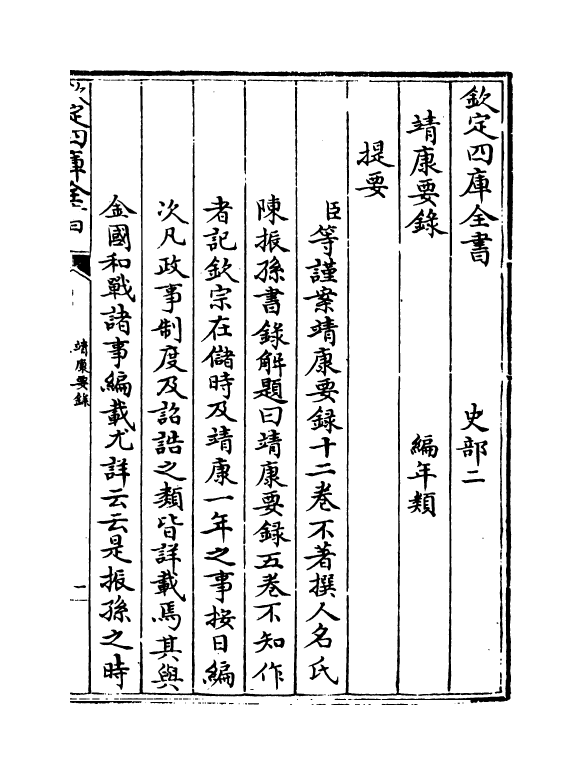 欽定四庫全書　史部二
靖康要錄　編年類
提要
臣等謹案靖康要録十二卷不著撰人名氏
陳振孫書錄解題曰靖康要録五卷不知作
者記欽宗在儲時及靖康一年之事按日編
次凡政事制度及詔誥之類皆詳載焉其與
金國和戰諸事編載尤詳云云是振孫之時
欽定四庫全書
靖康要録
一